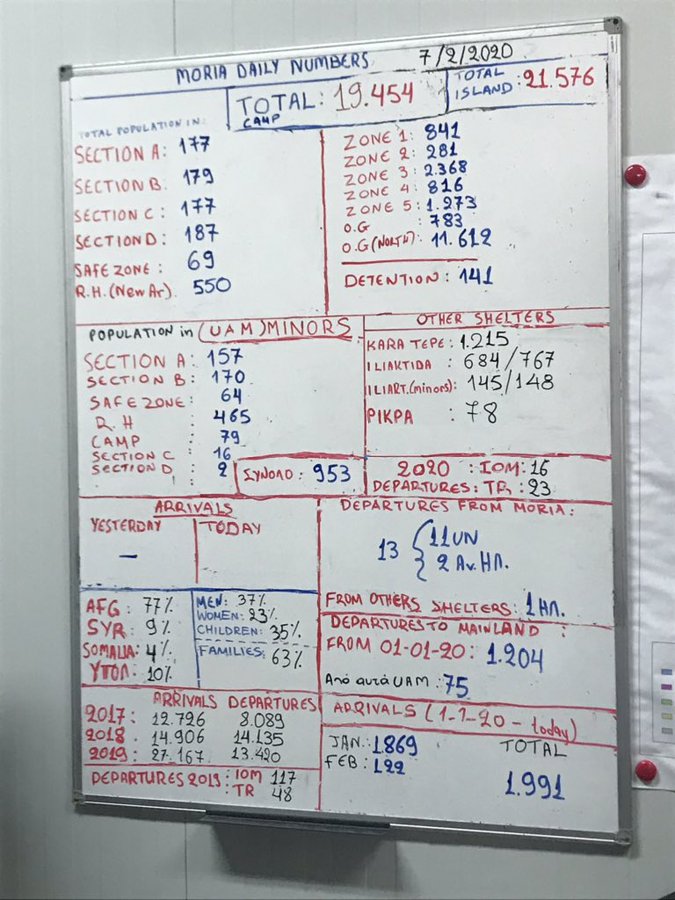 MORIA DAILY NUMBERS 7/2/2020
TOTAL CAMP: 19.454
TOTAL ISLAND: 21.576
TOTAL POPULATION IN:
SECTION A: 177
SECTION B: 179
SECTION C: 177
SECTION D: 187
SAFE ZONE: 69
R.H. (New Ar). 550
ZONE 1: 841
ZONE 2: 281
ZONE 3: 2.368
ZONE 4: 816
ZONE 5: 1.273
O.G : 783
O.G (NORTH): 11.612
DETENTION: 141
POPULATION in (UAM) MINORS
SECTION A: 157
SECTION B: 170
SAFE ZONE: 64
R.H : 465
CAMP : 79
SECTION C : 16
SECTION D : 2
ΣΥΝΟΛΟ: 953
OTHER SHELTERS
KARA TEPE: 1.215
ILIAKTIDA : 684/767
ILIAKT.(minors): 145/148
PIKPA : 78
2020 DEPARTURES: IOM: 16
TR: 23
ARRIVALS
YESTERDAY
–
TODAY
DEPARTURES FROM MORIA:
13 { 11UN
2 Αν.ΗΛ.
FROM OTHERS SHELTERS: 1 ΗΛ.
AFG: 77%
SYR: 9%
SOMALIA: 4%
ΥΠΟΛ: 10%
MEN: 37%
WOMEN: 23%
CHILDREN: 35%
FAMILIES: 63%
DEPARTURES TO MAINLAND :
FROM 01-01-20: 1.204
Από αυτά UAM: 75
ARRIVALS DEPARTURES
2017: 12.726 8.089
2018: 14.906 14.135
2019: 27.167 13.420
DEPARTURES 2019: IOM 117
: TR 48
ARRIVALS (1-1-20 - today)
JAN: 1869
FEB: 122
TOTAL
1.991